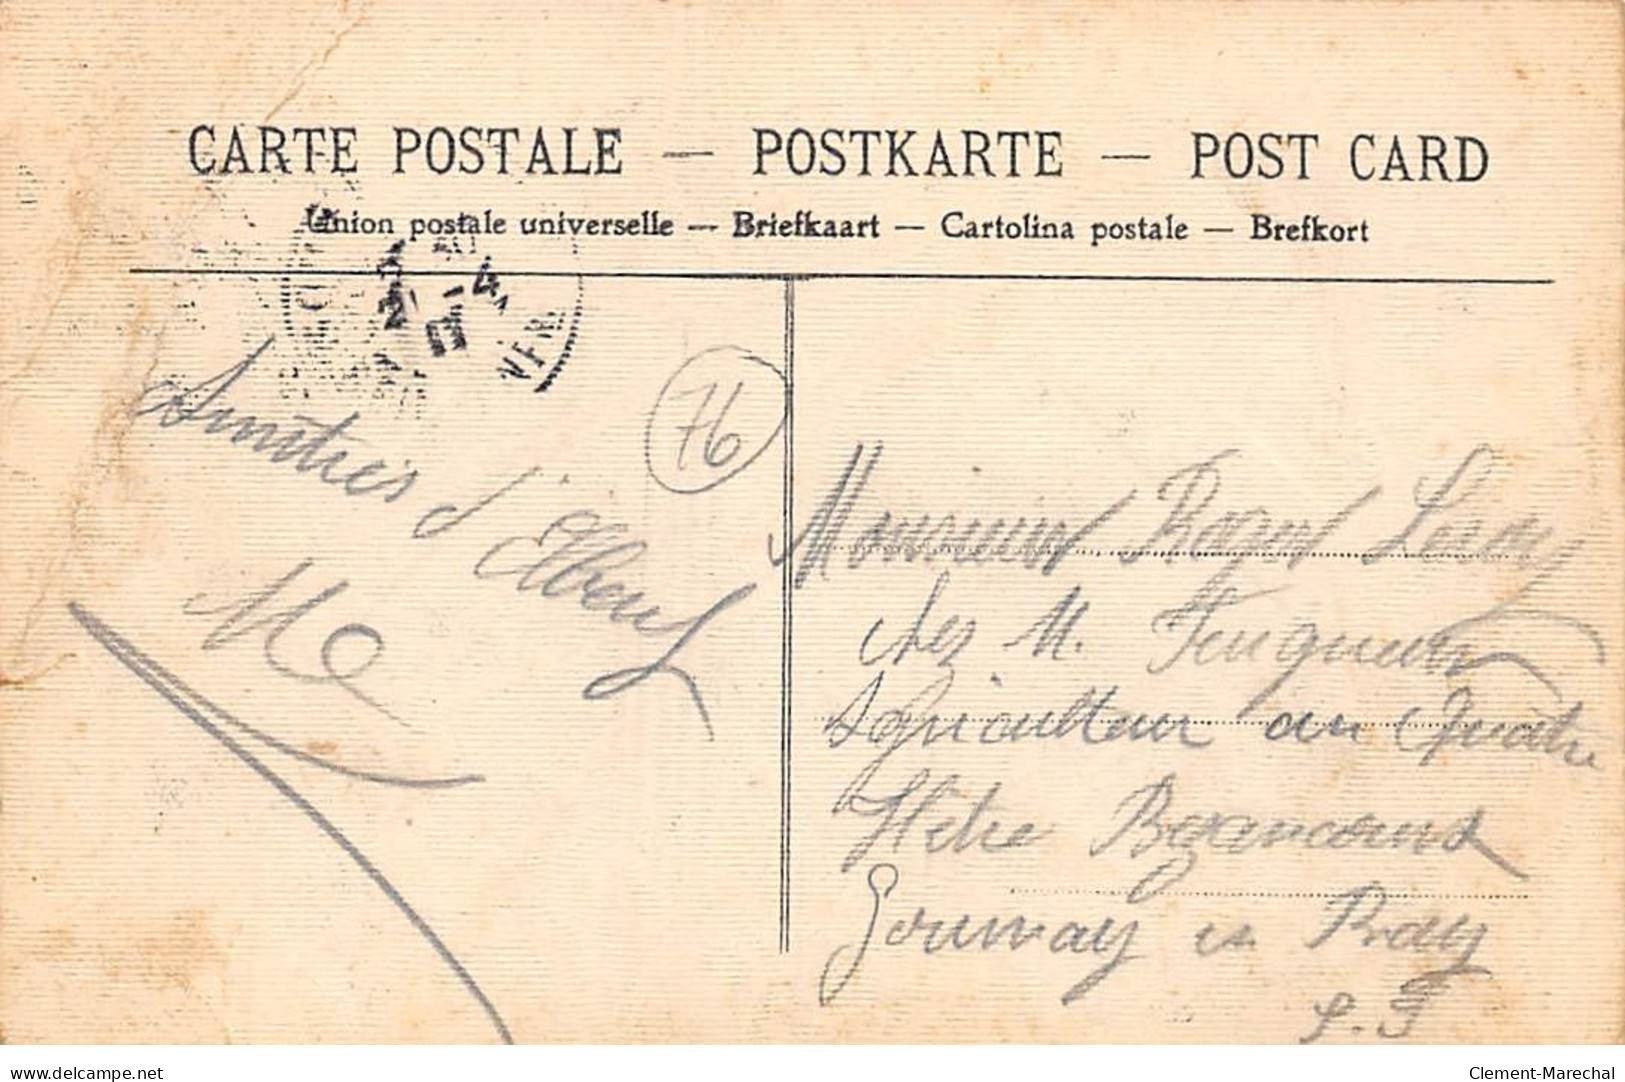 CARTE POSTALE — POSTKARTE — POST CARD
Union postale universelle — Briefkaart — Cartolina postale — Brefkort
21 -4
11
INFR
76
Amitiés d'Elbeuf
Monsieur Roger Leroy
chez M. Feuqueur
Agriculteur au Quatre
Hetre
Gournay en Bray
S. I
delcampe.net
Clement-Marechal